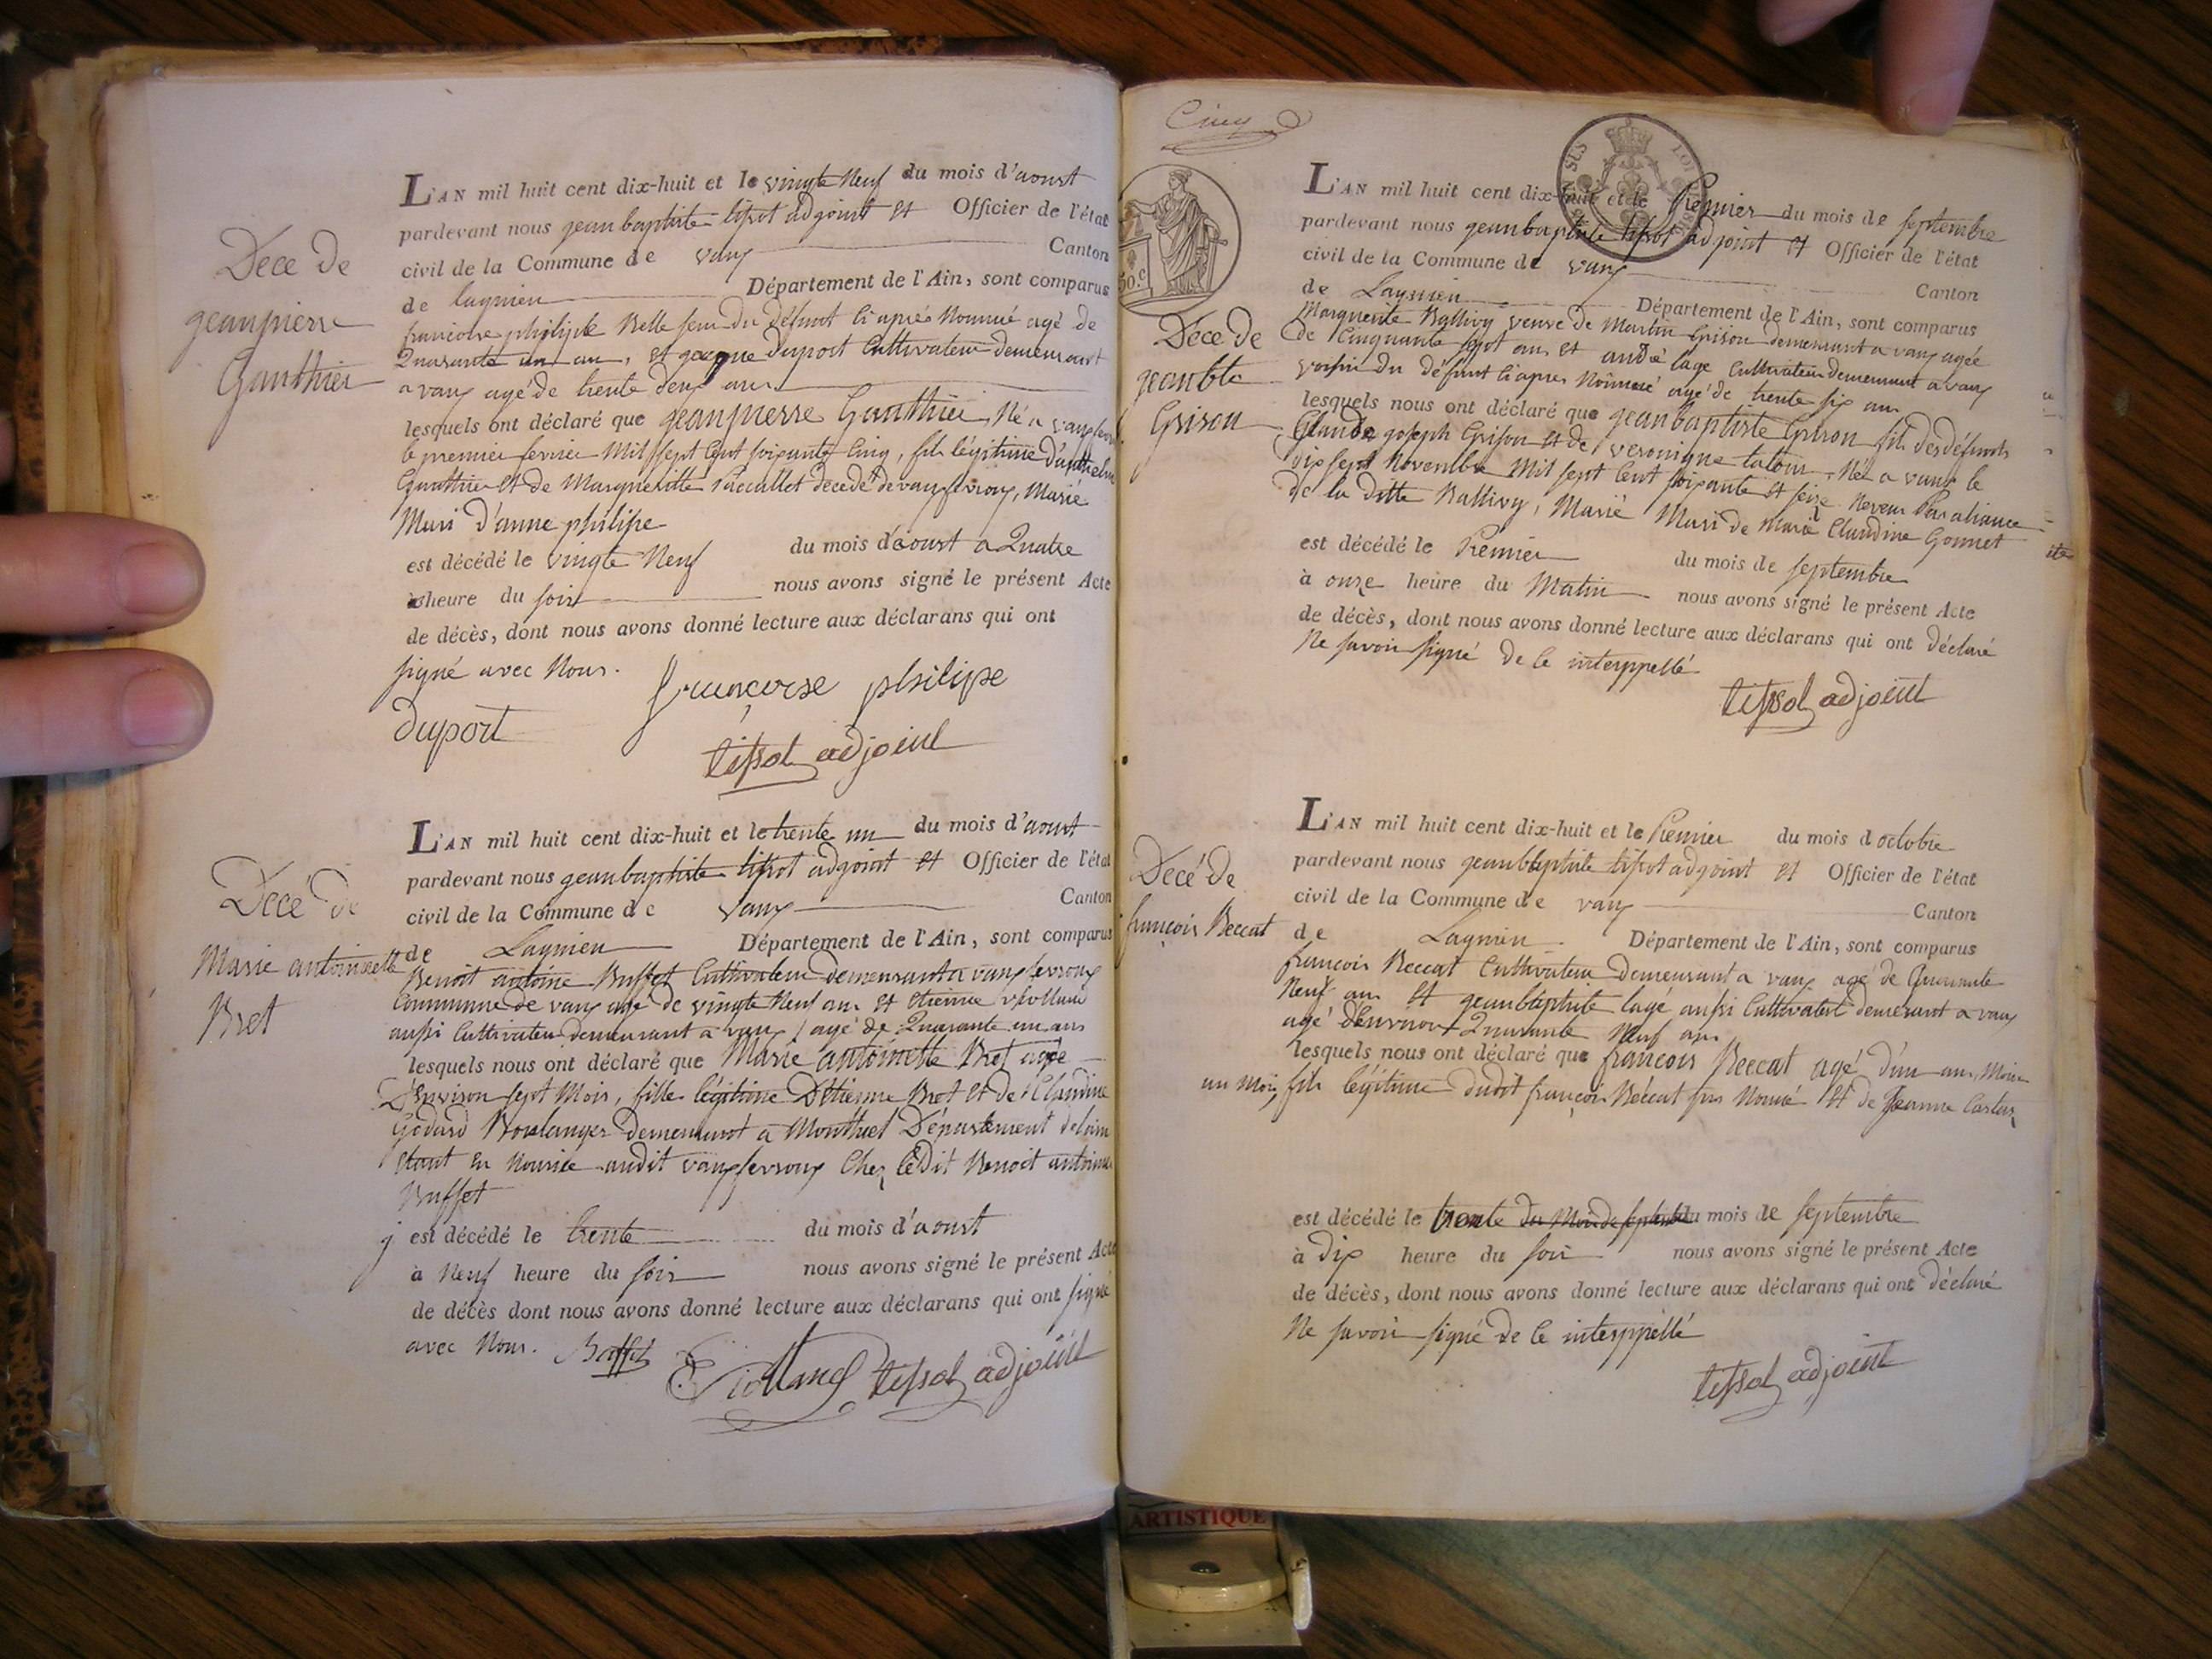 Décé de
jeanpierre
Gauthier
L'AN mil huit cent dix-huit et le vingte Neuf du mois d'aoust
pardevant nous jean baptiste tissot adjoint et Officier de l'état
civil de la Commune de vaux Canton
de lagnieu Département de l'Ain, sont comparus
françoise philipe Belle seur du défunt ci après Nommé agé de
Quarante un an, et jacque duport Cultivateur demeurant
a vaux agé de trente deux ans
lesquels ont déclaré que jeanpierre Gauthier Né a vaux
le premier fevrier Mil sept Cent soixante Cinq, fils légitime d'anthelme
Gauthier et de Margueritte décédé de vaux fevroux, Marié
Mari d'anne philipe
est décédé le vingte Neuf du mois d'aoust a Quatre
heure du soir nous avons signé le présent Acte
de décès, dont nous avons donné lecture aux déclarans qui ont
signé avec Nous.
françoise philipe
duport
tissot adjoint
Décé de
Marie antoinette
Bret
L'AN mil huit cent dix-huit et le trente un du mois d'aoust
pardevant nous jean baptiste tissot adjoint et Officier de l'état
civil de la Commune de vaux Canton
de Lagnieu Département de l'Ain, sont comparus
Benoit antoine Buffet Cultivateur demeurant a vaux fevroux
Commune de vaux agé de vingte Neuf ans et etienne
aussi Cultivateur demeurant a vaux agé de Quarante un ans
lesquels nous ont déclaré que Marie antoinette Bret agée
D'Environ sept Mois, fille légitime D'Etienne Bret et de Claudine
Godard Boulanger demeurant a Montluel Département de lain
etant en Nourice audit vaux fevroux Chez Ledit Benoit antoine
Buffet
est décédé le trente du mois d'aoust
à Neuf heure du soir nous avons signé le présent Acte
de décès dont nous avons donné lecture aux déclarans qui ont signé
avec Nous. Buffet
tissot adjoint
Cinq
50.c
Décé de
jean bte
Grison
L'AN mil huit cent dix-huit et le Premier du mois de septembre
pardevant nous jean baptiste tissot adjoint et Officier de l'état
civil de la Commune de vaux Canton
de Lagnieu Département de l'Ain, sont comparus
Marguerite Ballivy veuve de Martin Grison demeurant a vaux agée
de Cinquante sept ans et andré lagé Cultivateur demeurant a vaux
voisin du défunt ci apres Nommé agé de trente six ans
lesquels nous ont déclaré que jean baptiste Grison fils des défunts
Claude joseph Grison et de veronique Né a vaux le
dix sept Novembre Mil sept Cent soixante et seize Neveux Par aliance
de la ditte Ballivy, Marié Mari de Marie Claudine Gonnet
est décédé le Premier du mois de septembre
à onze heure du Matin nous avons signé le présent Acte
de décès, dont nous avons donné lecture aux déclarans qui ont déclaré
Ne savoir signé de Ce interppellé
tissot adjoint
Décé de
françois Beccat
L'AN mil huit cent dix-huit et le Premier du mois d octobre
pardevant nous jean baptiste tissot adjoint et Officier de l'état
civil de la Commune de vaux Canton
de Lagnieu Département de l'Ain, sont comparus
françois Beccat Cultivateur demeurant a vaux agé de Quarante
Neuf ans et jean baptiste lagé aussi Cultivateur demeurant a vaux
agé d'Environ Quarante Neuf ans
lesquels nous ont déclaré que françois Beccat agé d'un ans, Moin
un Mois, fils légitime dudit françois Beccat sus Nomé et de Jeanne
est décédé le trente du mois de septembre
à dix heure du soir nous avons signé le présent Acte
de décès, dont nous avons donné lecture aux déclarans qui ont déclaré
Ne savoir signé de Ce interppellé
tissot adjoint
ARTISTIQUE